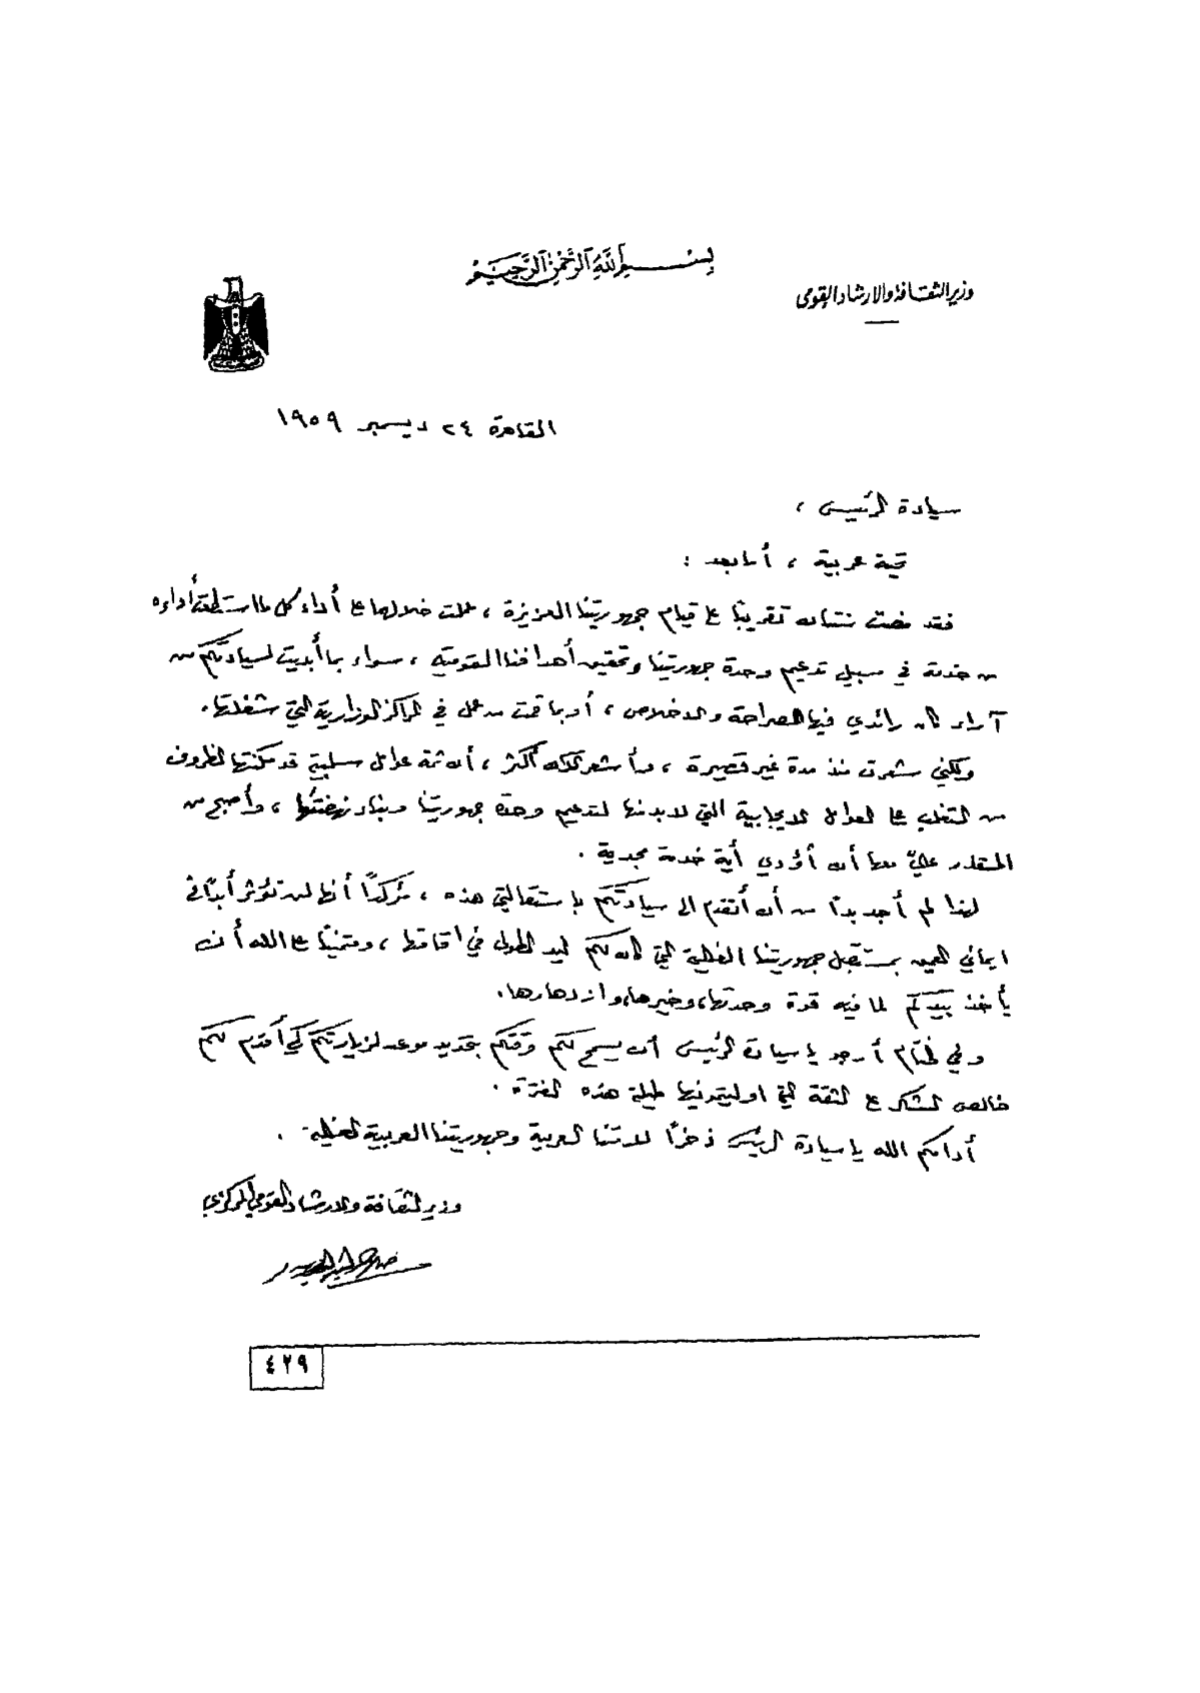 بسم الله الرحمن الرحيم
وزير الثقافة والارشاد القومى
القاهرة ٢٤ ديسمبر ١٩٥٩
سيادة الرئيس ،
تحية عربية ، أما بعد :
فقد مضت سنتان تقريبًا على قيام جمهوريتنا العزيزة ، عملت خلالها على أداء كل ما استطعت أداءه
من خدمة في سبيل تدعيم وحدة جمهوريتنا وتحقيق أهدافنا القومية ، سواء بما أبديت لسيادتكم من
آراء كان رائدي فيها الصراحة والاخلاص ، أو بما قمت من عمل في المراكز الوزارية التي شغلتها .
ولكني شعرت منذ مدة غير قصيرة ، وأشعر الآن أكثر ، أن ثمة عوامل سلبية قد مكنتها الظروف
من التغلب على العوامل الايجابية التي لابد منها لتدعيم وحدة جمهوريتنا وبناء نهضتها ، وأصبح من
المتعذر عليّ معها أن أؤدي أية خدمة مجدية .
لهذا لم أجد بدًا من أن أتقدم الى سيادتكم باستقالتي هذه ، مؤكدًا أنها لن تؤثر أبدًا في
ايماني العميق بمستقبل جمهوريتنا الغالية التي كان لكم اليد الطولى في اقامتها ، ومتمنيًا على الله أن
يأخذ بيدكم لما فيه قوة وحدتها، وخيرها، وازدهارها.
وفي الختام أرجو يا سيادة الرئيس أن يسمح لكم وقتكم بتحديد موعد لزيارتكم لكي أقدم لكم
خالص الشكر على الثقة التي اوليتمونيها طيلة هذه الفترة .
أدامكم الله يا سيادة الرئيس ذخرًا لامتنا العربية وجمهوريتنا العربية .
وزير الثقافة والارشاد القومي المركزي
٤٢٩